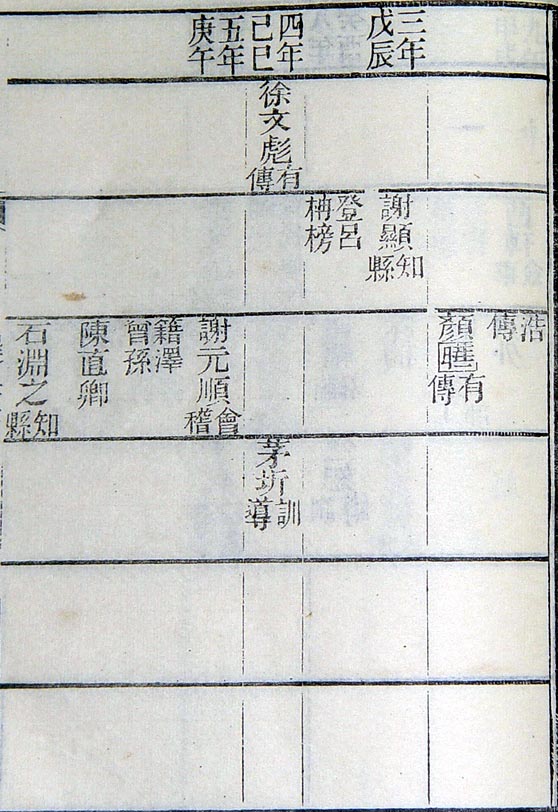 三年
戊辰
四年
己巳
五年
庚午
徐文彪有傳
謝顯知縣
登呂
柟榜
浩傳
顏有傳
謝元順會稽
籍澤
曾孫
陳直卿
石淵之知縣
茅圻訓導